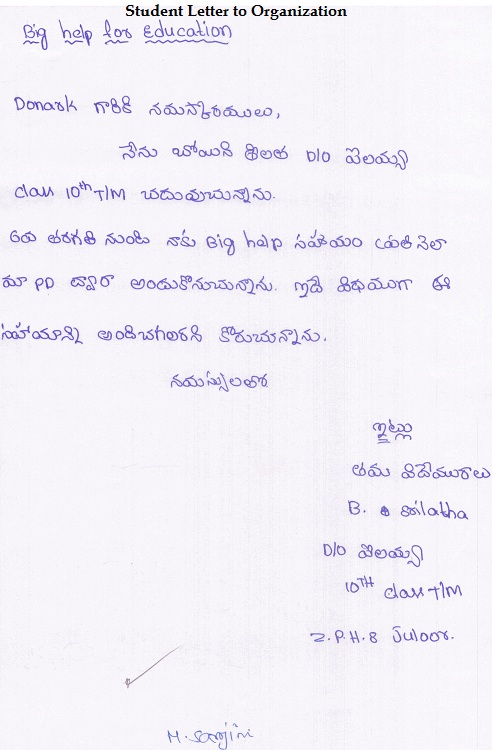 Student Letter to Organization
Big help for Education
Donark గారికి నమస్కారములు,
నేను బోయిని శ్రీలత D/O ఐలయ్య
class 10th T/M చదువుచున్నాను.
6వ తరగతి నుండి నాకు Big help సహాయం ప్రతి నెలా
మా PD ద్వారా అందుకొనుచున్నాను. ఇదే విధముగా ఈ
సహాయాన్ని అందించగలరని కోరుచున్నాను.
నమస్సులతో
ఇట్లు
తమ విదేయురాలు
B. Srilatha
D/O ఐలయ్య
10TH class T/M
Z.P.H.S Juloor.